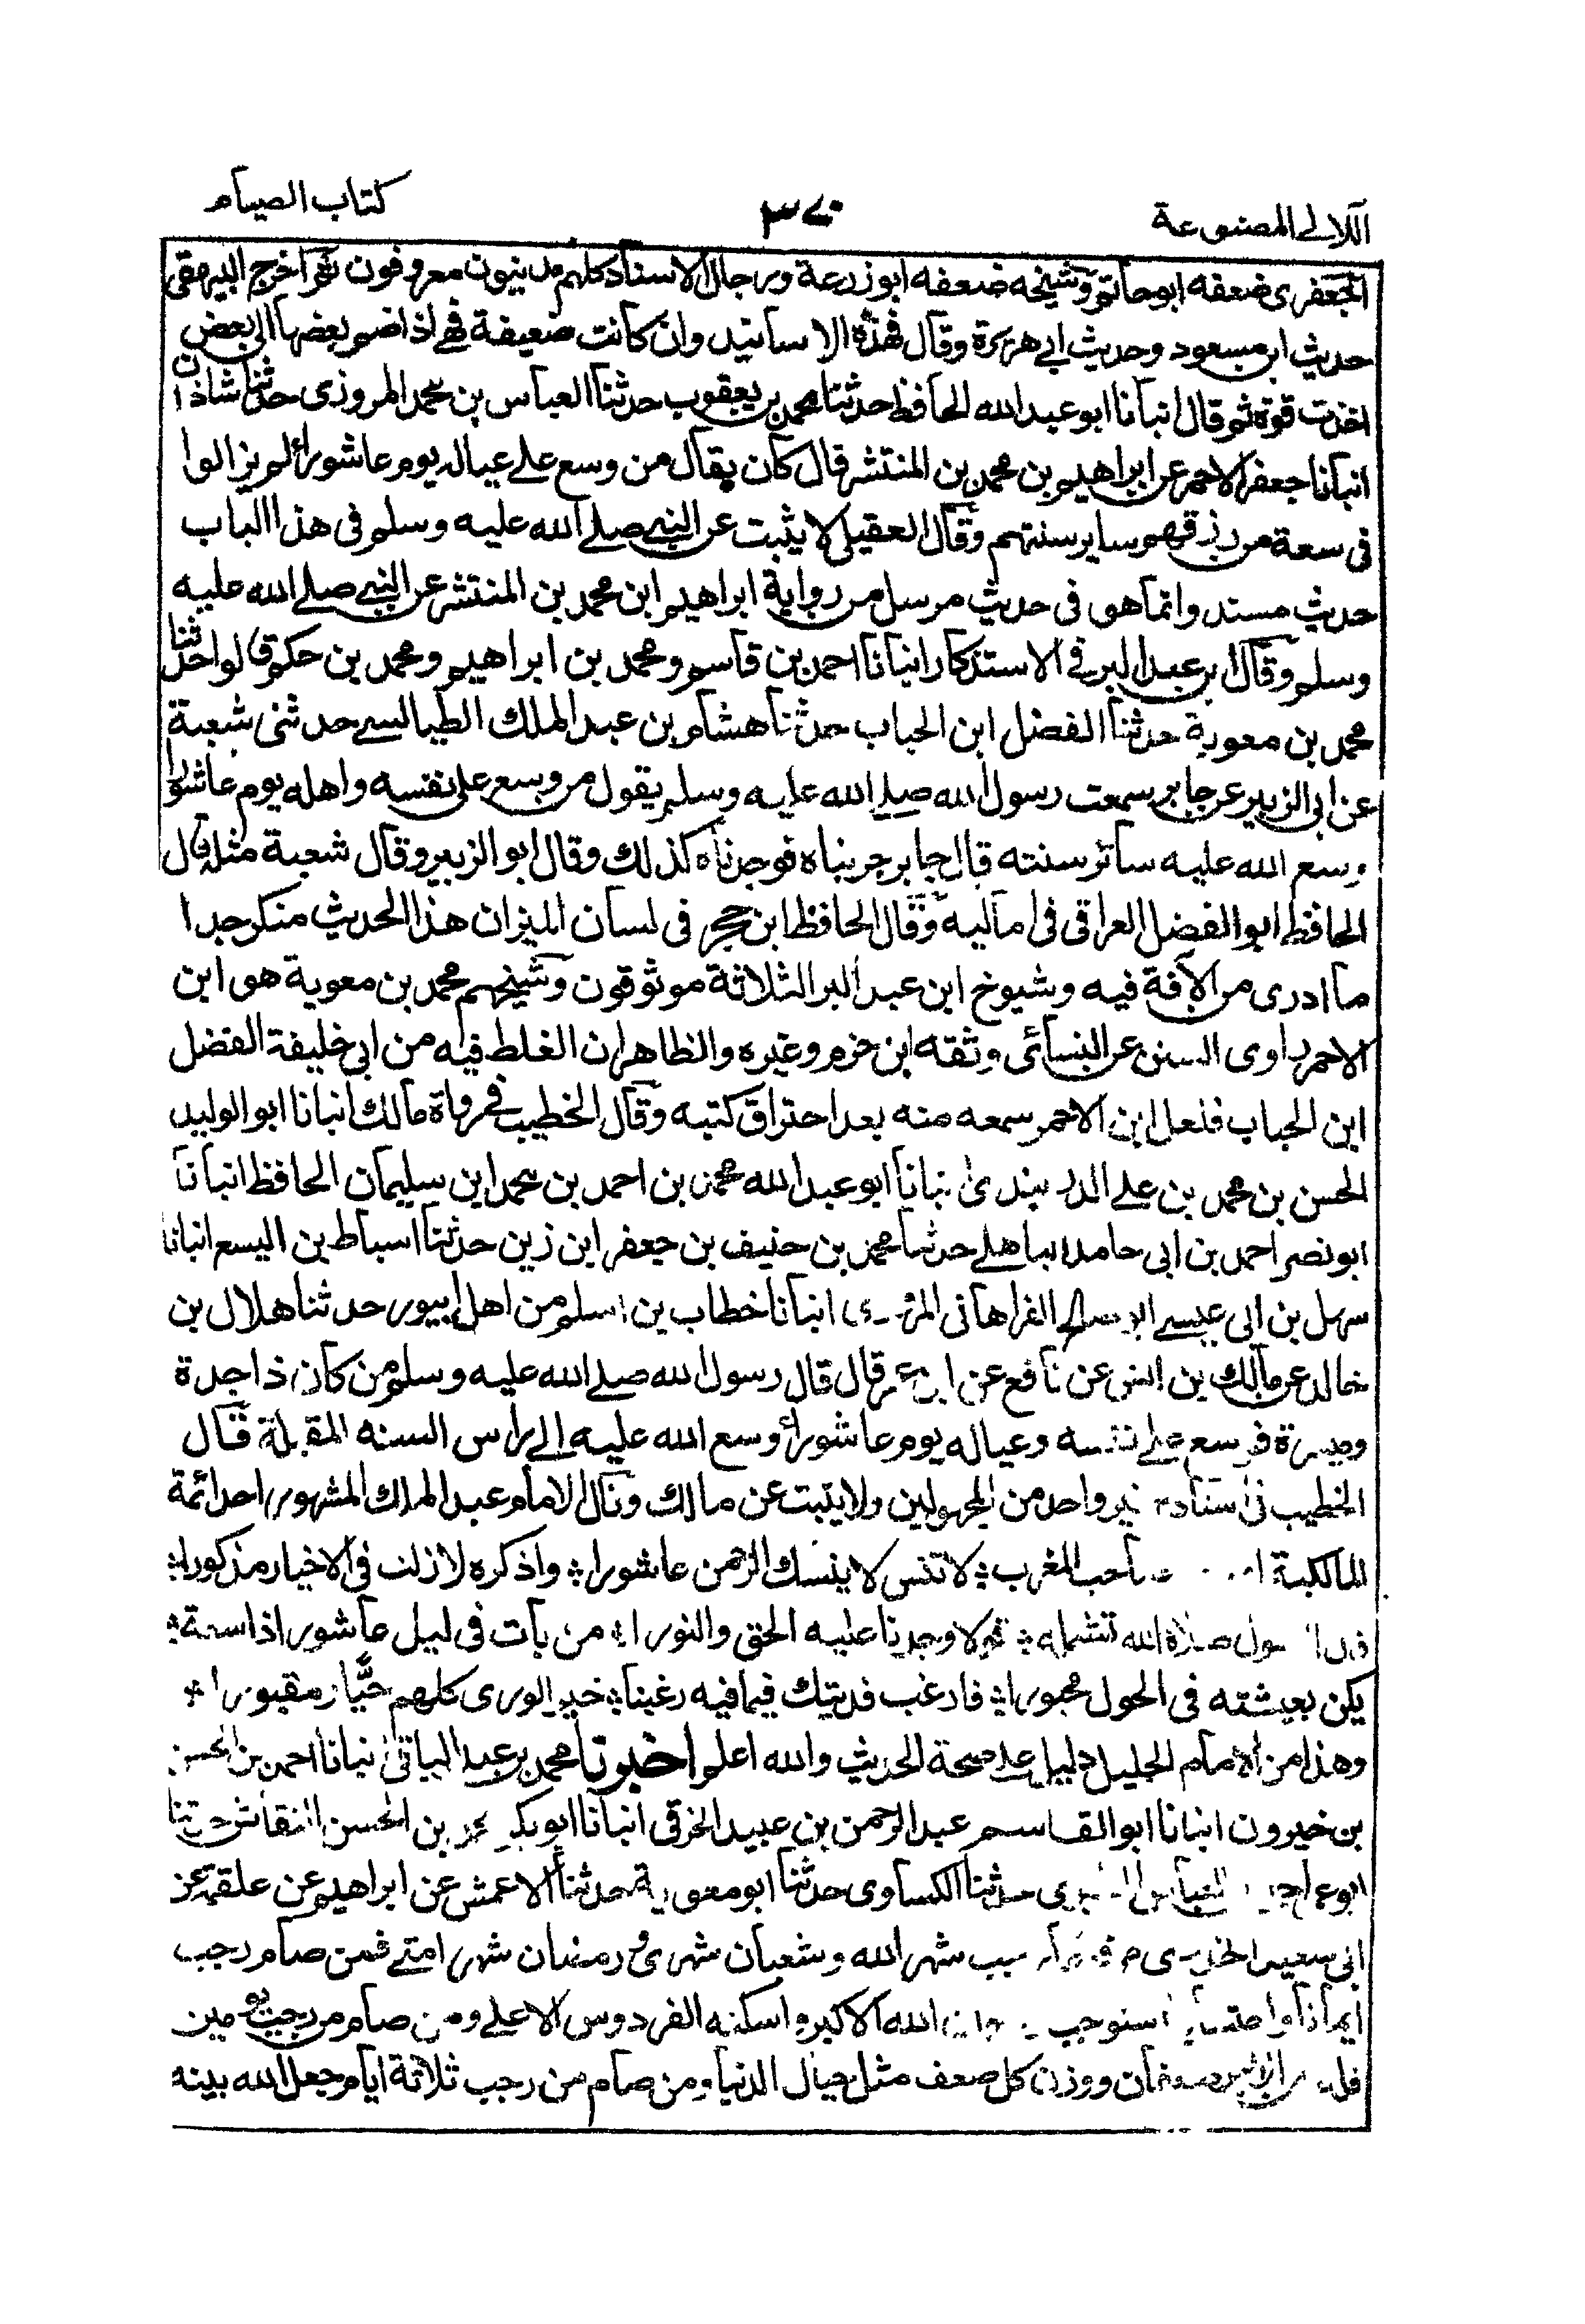 اللآلى المصنوعة
٣٧٠
كتاب الصيام
الجعفرى ضعفه ابو حاتم وشيخه ضعفه ابو زرعة ورجال الاسناد كلهم مدنيون معروفون ثم اخرج البيهقى
حديث ابن مسعود وحديث ابى هريرة وقال فهذه الاسانيد وان كانت ضعيفة فهى اذا ضم بعضها الى بعض
اخذت قوة ثم قال انبانا ابو عبد الله الحافظ حدثنا محمد بن يعقوب حدثنا العباس بن محمد المروزى حدثنا شاذان
انبانا جعفر الاحمر عن ابراهيم بن محمد بن المنتشر قال كان يقال من وسع على عياله يوم عاشوراء لم يزالوا
فى سعة من رزقهم ساير سنتهم وقال العقيلى لا يثبت عن النبى صلى الله عليه وسلم فى هذا الباب
حديث مسند وانما هو فى حديث مرسل من رواية ابراهيم ابن محمد بن المنتشر عن النبى صلى الله عليه
وسلم وقال ابن عبد البر فى الاستذكار انبانا احمد بن قاسم ومحمد بن ابراهيم ومحمد بن حكم قالوا حدثنا
محمد بن معوية حدثنا الفضل ابن الحباب حدثنا هشام بن عبد الملك الطيالسى حدثنى شعبة
عن ابى الزبير عن جابر سمعت رسول الله صلى الله عليه وسلم يقول من وسع على نفسه واهله يوم عاشورا
وسع الله عليه سائر سنته قال جابر جربناه فوجدناه كذلك وقال ابو الزبير وقال شعبة مثله قال
الحافظ ابو الفضل العراقى فى اماليه وقال الحافظ ابن حجر فى لسان الميزان هذا الحديث منكر جدا
ما ادرى من الآفة فيه وشيوخ ابن عبد البر الثلاثة موثوقون وشيخهم محمد بن معوية هو ابن
الاحمر راوى السنن عن النسائى وثقه ابن حزم وغيره والظاهر ان الغلط فيه من ابى خليفة الفضل
ابن الحباب فلعل ابن الاحمر سمعه منه بعد احتراق كتبه وقال الخطيب فى رواة مالك انبانا ابو الوليد
الحسن بن محمد بن على الدربندى انبانا ابو عبد الله محمد بن احمد بن محمد ابن سليمان الحافظ انبانا
ابو نصر احمد بن ابى حامد الباهلى حدثنا محمد بن حنيف بن جعفر ابن زين حدثنا اسباط بن اليسع انبانا
سهل بن ابى عيسى ابو صالح الفراهانى انبانا خطاب بن اسلم من اهل ابيور حدثنا هلال بن
خالد عن مالك بن انس عن نافع عن ابن عمر قال قال رسول الله صلى الله عليه وسلم من كان ذا جدة
وميسرة فوسع على نفسه وعياله يوم عاشوراء وسع الله عليه الى راس السنه المقبلة قال
الخطيب فى اسناده غير واحد من المجهولين ولا يثبت عن مالك وقال الامام عبد الملك المشهور احد ائمة
المالكية صاحب المغرب ؞ لا تنس لا ينسك الرحمن عاشورا ؞ واذكره لا زلت فى الاخيار مذكورا ؞
صلاة الله تشمله ؞ وجدنا عليه الحق والنورا ؞ من بات فى ليل عاشورا ذا سعة ؞
يكن بعيشته فى الحول محبورا ؞ فارغب فديتك فيما فيه رغبنا ؞ خير الورى كلهم حيًّا ومقبورا ؞
وهذا من الامام الجليل دليل على صحة الحديث والله اعلم اخبرنا محمد بن عبد الباقى انبانا احمد بن الحسن
بن خيرون انبانا ابو القاسم عبد الرحمن بن عبيد الخرقى انبانا ابو بكر محمد بن الحسن النقاش حدثنا
حدثنا الكساوى حدثنا ابو معوية حدثنا الاعمش عن ابراهيم عن علقمة عن
ابى سعيد الخدرى شهر الله وشعبان شهرى ورمضان شهر امتى فمن صام رجب
ايمانا واحتسابا استوجب الله الاكبر واسكنه الفردوس الاعلى ومن صام من رجب يومين
ضعفان ووزن كل ضعف مثل جبال الدنيا ومن صام من رجب ثلاثة ايام جعل الله بينه